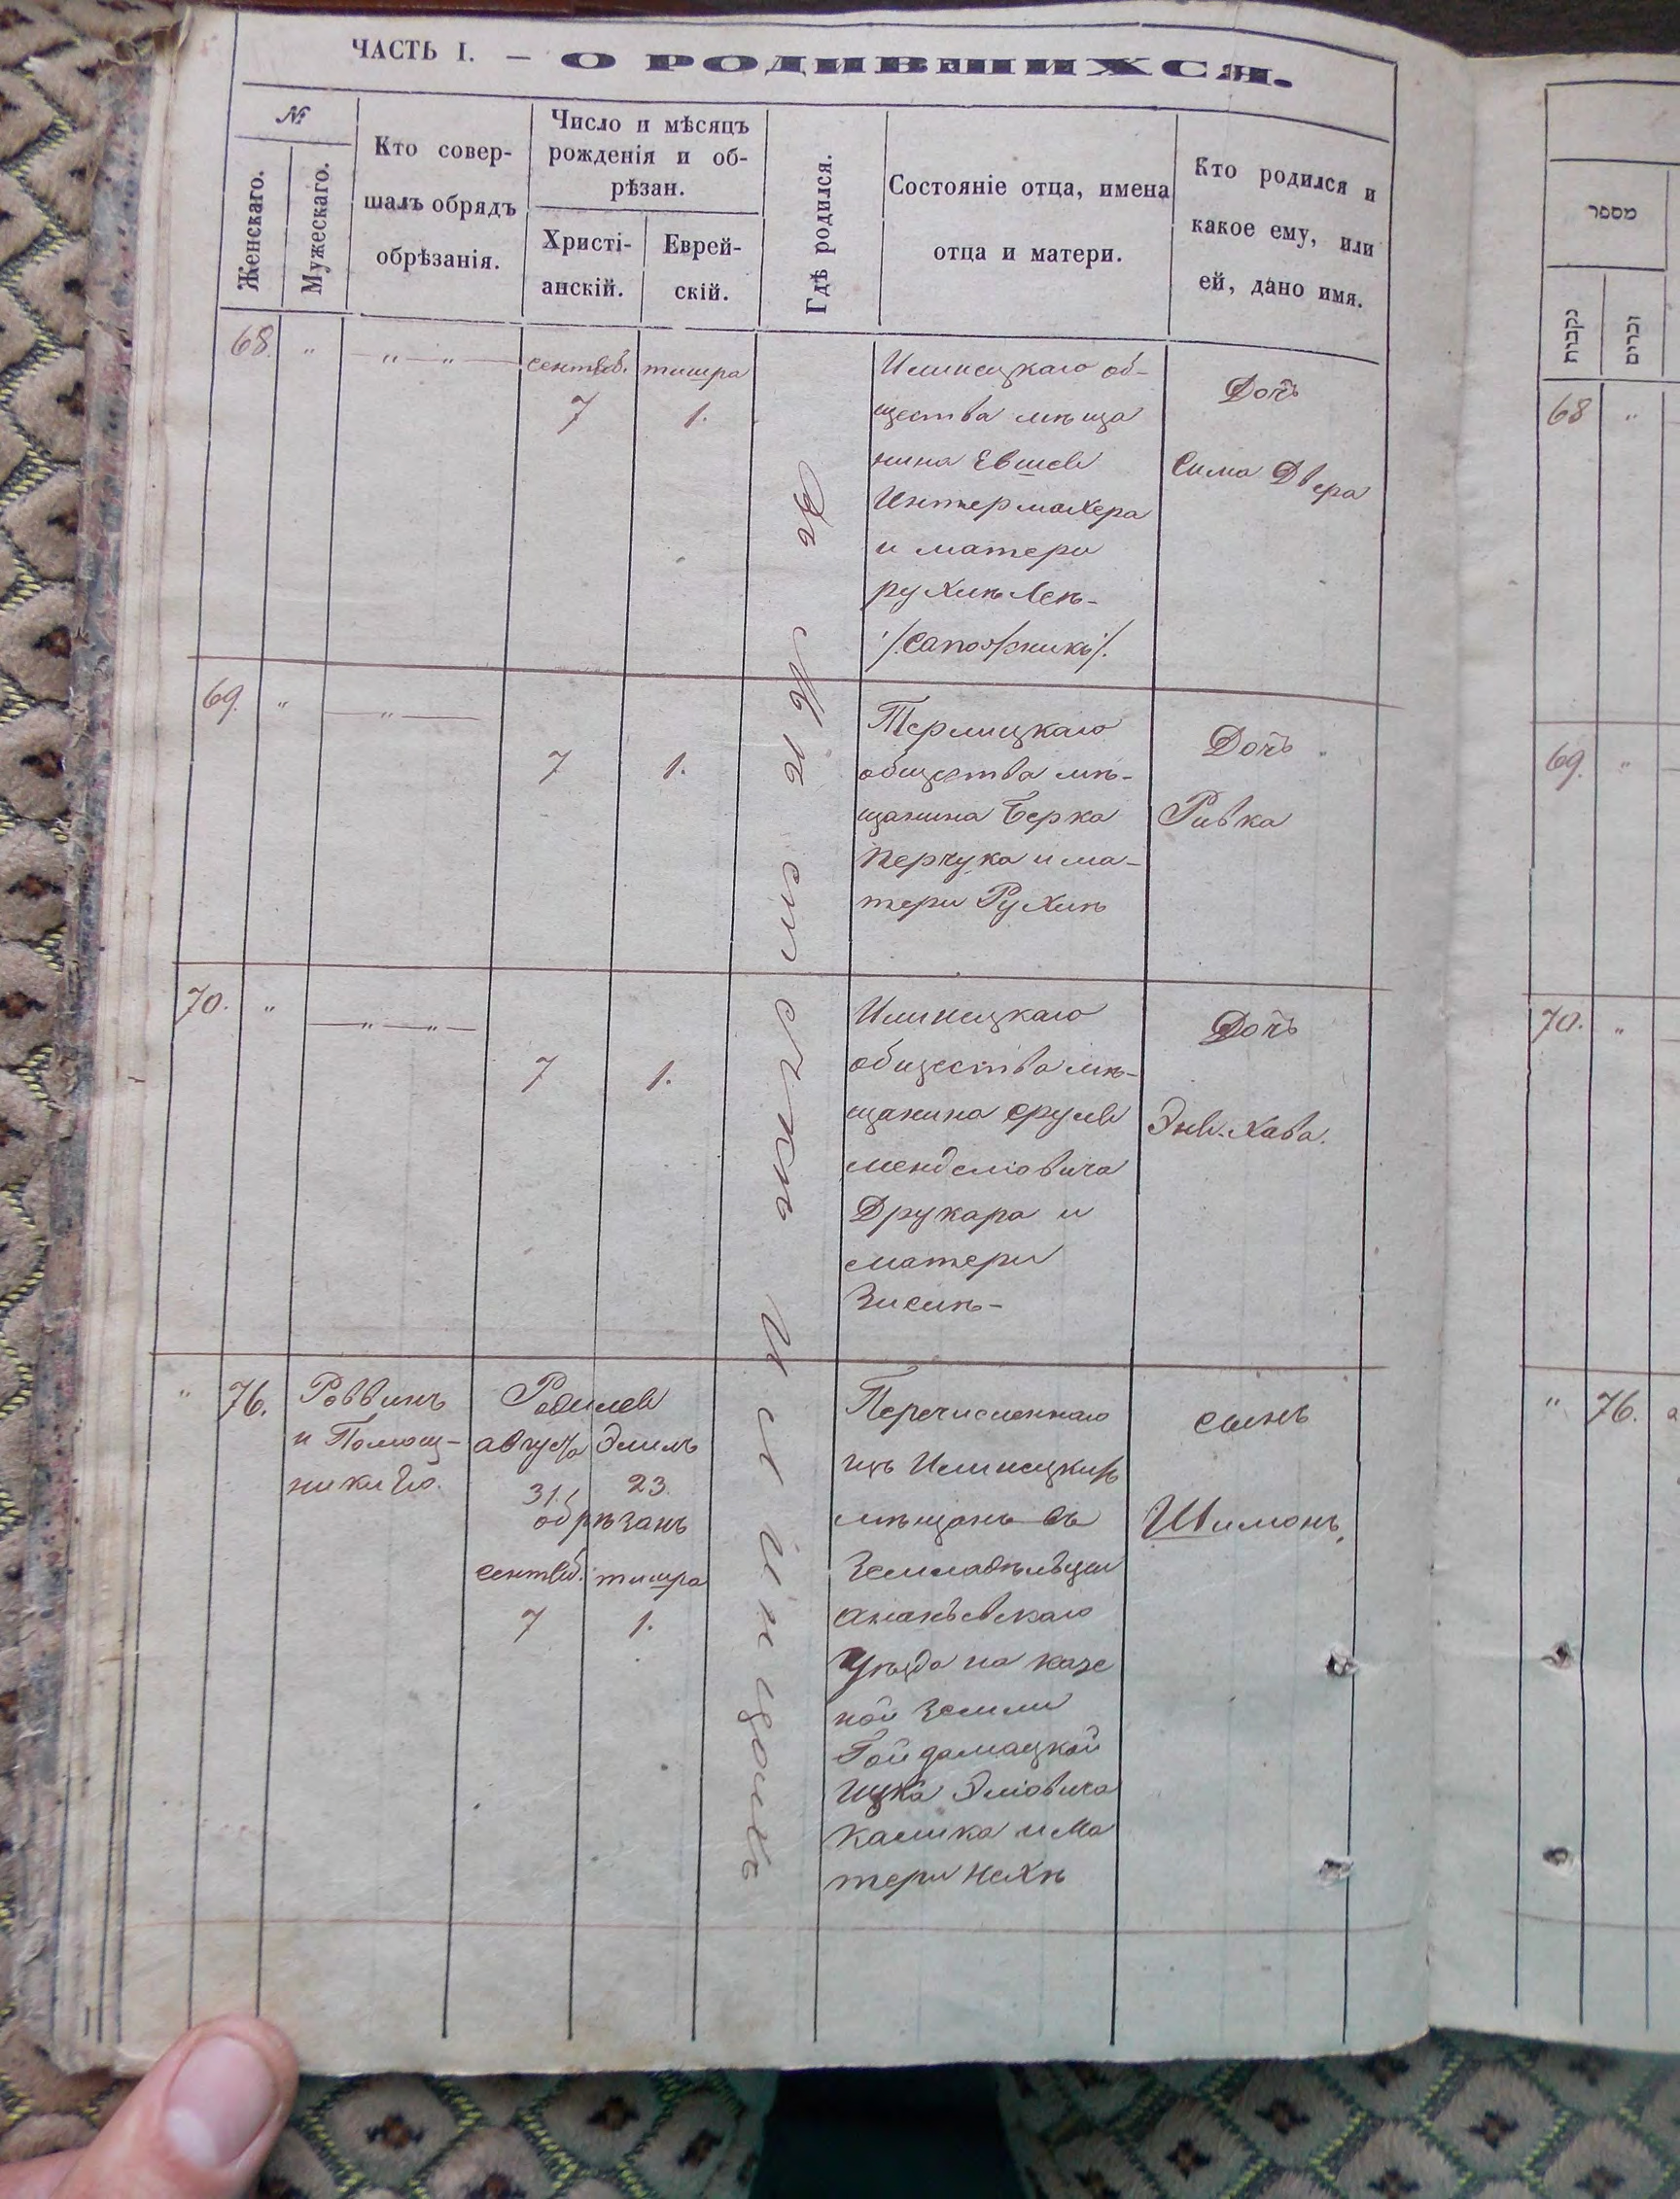 ЧАСТЬ I. — О РОДИВШИХСЯ.
№
Женскаго.
Мужескаго.
Кто совер-
шалъ обрядъ
обрѣзанія.
Число и мѣсяцъ
рожденія и об-
рѣзан.
Христі-
анскій.
Еврей-
скій.
Гдѣ родился.
Состояніе отца, имена
отца и матери.
Кто родился и
какое ему, или
ей, дано имя.
Въ мѣстечкѣ Илинцахъ
68. „ — „ — „ —
сентяб. тишра
7 1.
Илинецкаго об-
щества мѣща
нина Евшея
Интермахера
и матери
рухли Леи-
/:Сапожникъ:/
Дочь
Сима Двера
69. „ — „ —
7 1.
Терлицкаго
общества мѣ-
щанина Берка
Перчука и ма-
тери Рухли
Дочь
Ривка
70. „ — „ — „ —
7 1.
Илинецкаго
общества мѣ-
щанина Сруля
менделiовича
Друкара и
матери
Зисли-
Дочь
Эня-Хава.
„ 76.
Раввинъ
и Помощ-
ники Его.
Родился
август Элиль
31. 23.
обрѣзанъ
сентяб. тишра
7 1.
Перечисленнаго
изъ Илинецкихъ
мѣщанъ въ
Земледѣльцы
Ананьевскаго
Уѣзда на казе
ной Земли
Гайдамацкой
Ицка Элiовича
Калика и Ма
тери Нехи
сынъ
Шимонъ.
מספר
נקבות
זכרים
68 „
69. „
70. „
„ 76.